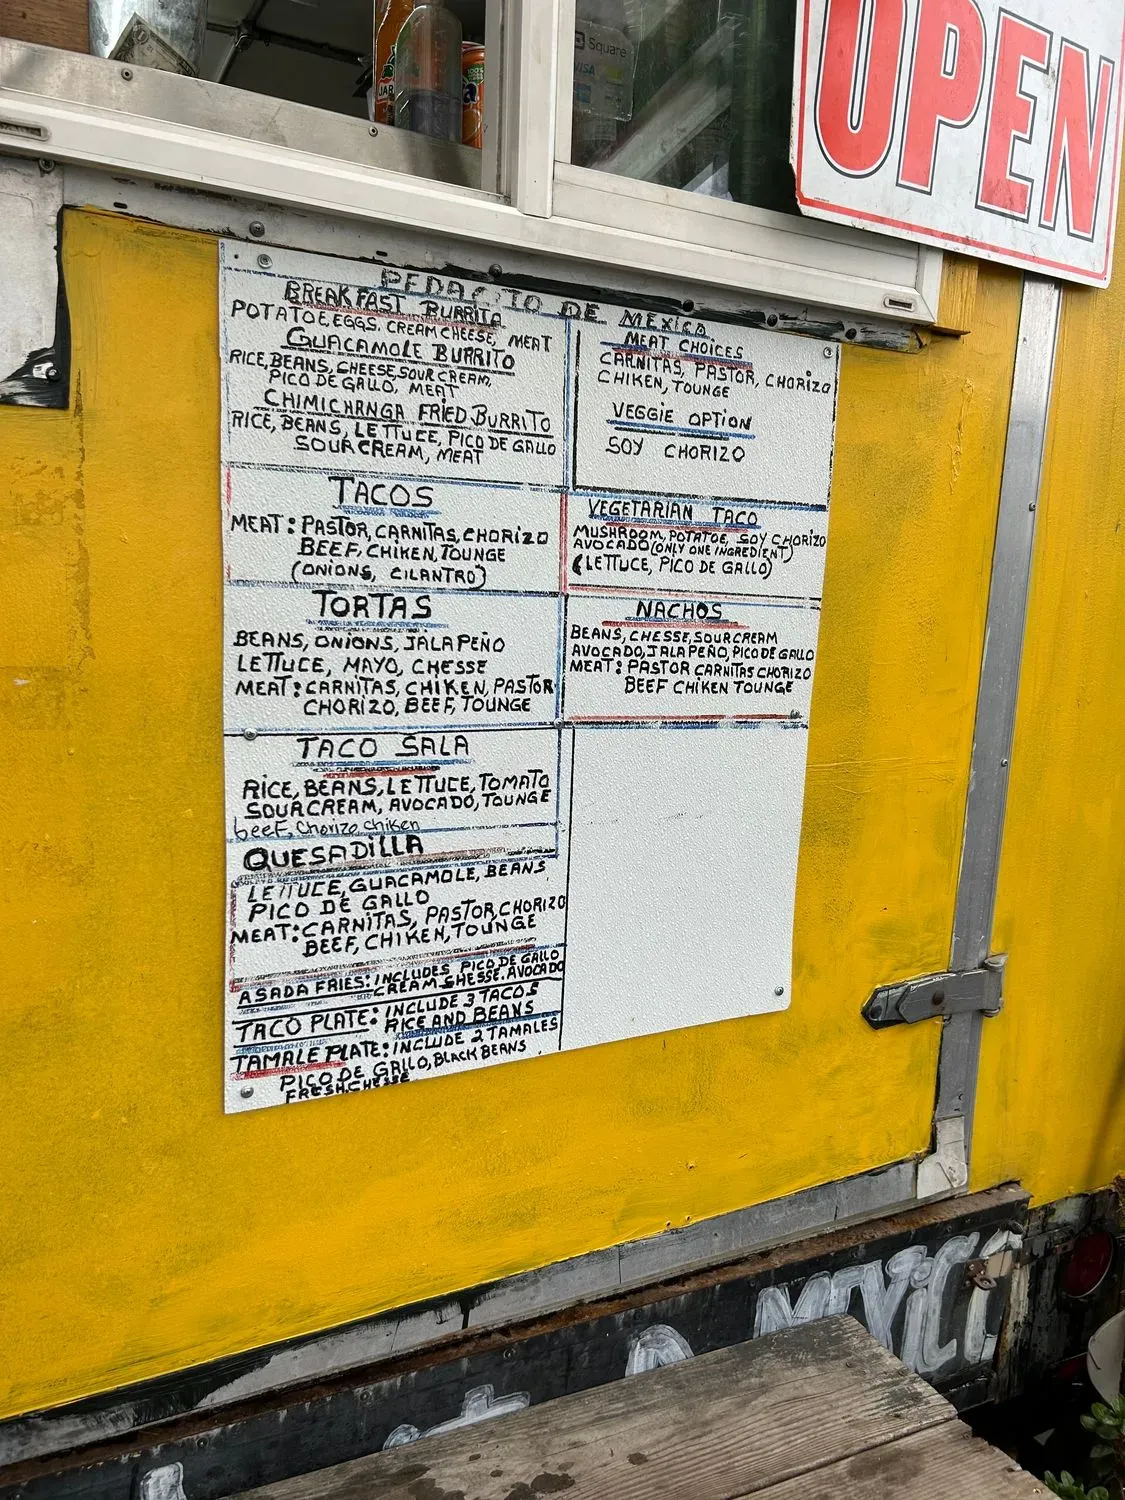 Square
VISA
OPEN
PEDACITO DE MEXICO
BREAKFAST BURRITA
POTATOE EGGS, CREAM CHEESE, MEAT
GUACAMOLE BURRITO
RICE, BEANS, CHEESE, SOUR CREAM,
PICO DE GALLO, MEAT
CHIMICHANGA FRIED BURRITO
RICE, BEANS, LETTUCE, PICO DE GALLO
SOUR CREAM, MEAT
MEAT CHOICES
CARNITAS, PASTOR, CHORIZO
CHIKEN, TOUNGE
VEGGIE OPTION
SOY CHORIZO
TACOS
MEAT: PASTOR, CARNITAS, CHORIZO
BEEF, CHIKEN, TOUNGE
(ONIONS, CILANTRO)
VEGETARIAN TACO
MUSHROOM, POTATOE, SOY CHORIZO
AVOCADO (ONLY ONE INGREDIENT)
(LETTUCE, PICO DE GALLO)
TORTAS
BEANS, ONIONS, JALAPEÑO
LETTUCE, MAYO, CHESSE
MEAT: CARNITAS, CHIKEN, PASTOR
CHORIZO, BEEF, TOUNGE
NACHOS
BEANS, CHESSE, SOUR CREAM
AVOCADO, JALAPEÑO, PICO DE GALLO
MEAT: PASTOR CARNITAS CHORIZO
BEEF CHIKEN TOUNGE
TACO SALA
RICE, BEANS, LETTUCE, TOMATO
SOUR CREAM, AVOCADO, TOUNGE
beeF, Chorizo chiken
QUESADILLA
LETTUCE, GUACAMOLE, BEANS,
PICO DE GALLO
MEAT: CARNITAS, PASTOR, CHORIZO
BEEF, CHIKEN, TOUNGE
ASADA FRIES: INCLUDES PICO DE GALLO
CREAM, CHESSE, AVOCADO
TACO PLATE: INCLUDE 3 TACOS
RICE AND BEANS
TAMALE PLATE: INCLUDE 2 TAMALES
PICO DE GALLO, BLACK BEANS
FRESH CHESSE